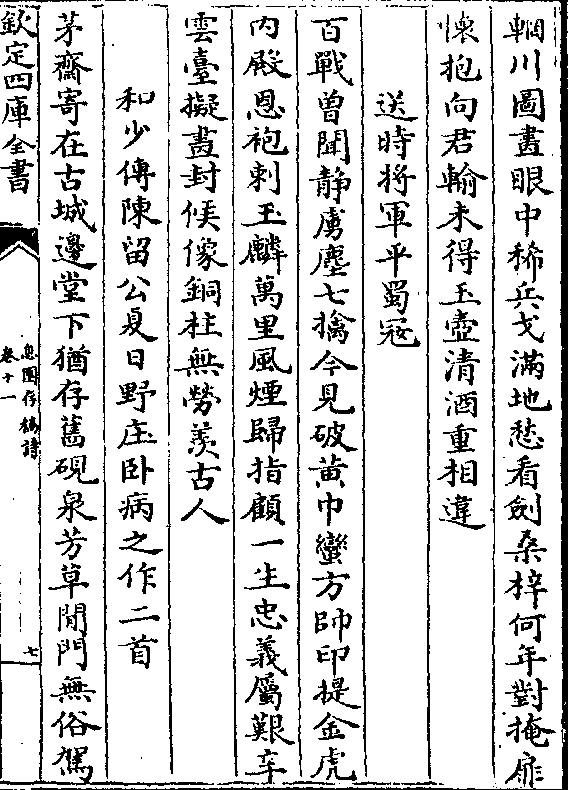 輞川圖畫眼中稀兵戈滿地愁看劍桑梓何年對掩扉
懐抱向君輸未得玉壺清酒重相違
送時將軍平蜀冦
百戰曽聞静虜塵七擒今見破黄巾蠻方帥印提金虎
内殿恩袍刺玉麟萬里風煙歸指顧一生忠義屬艱辛
雲臺擬畫封侯像銅柱無勞羡古人
和少傅陳留公夏日野庄卧病之作二首
茅齋寄在古城邊堂下猶存舊硯泉芳草閒門無俗駕
欽定四庫全書
息園存稿詩
卷十一
七